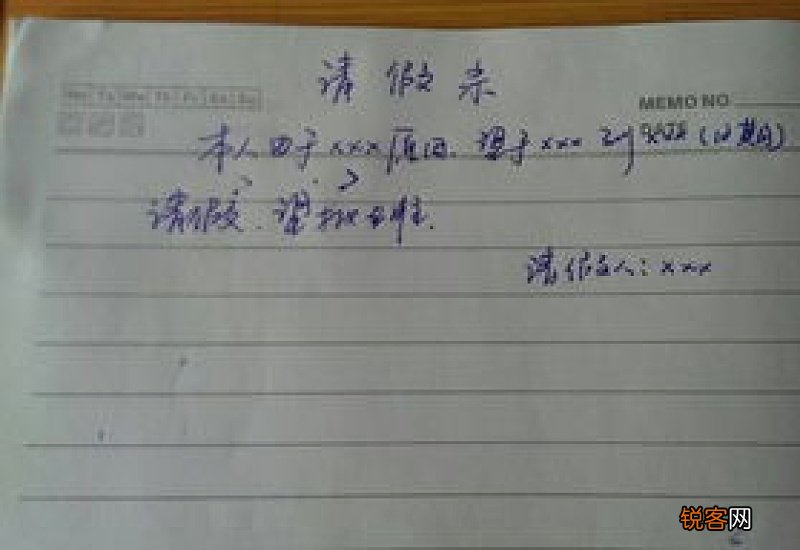 请假条
Mo Tu We Th Fr Sa Su
MEMO NO.
DATE
本人由于xxx原因.理于xxx到xxx(日期)
请假,望批准.
请假人:xxx
锐客网